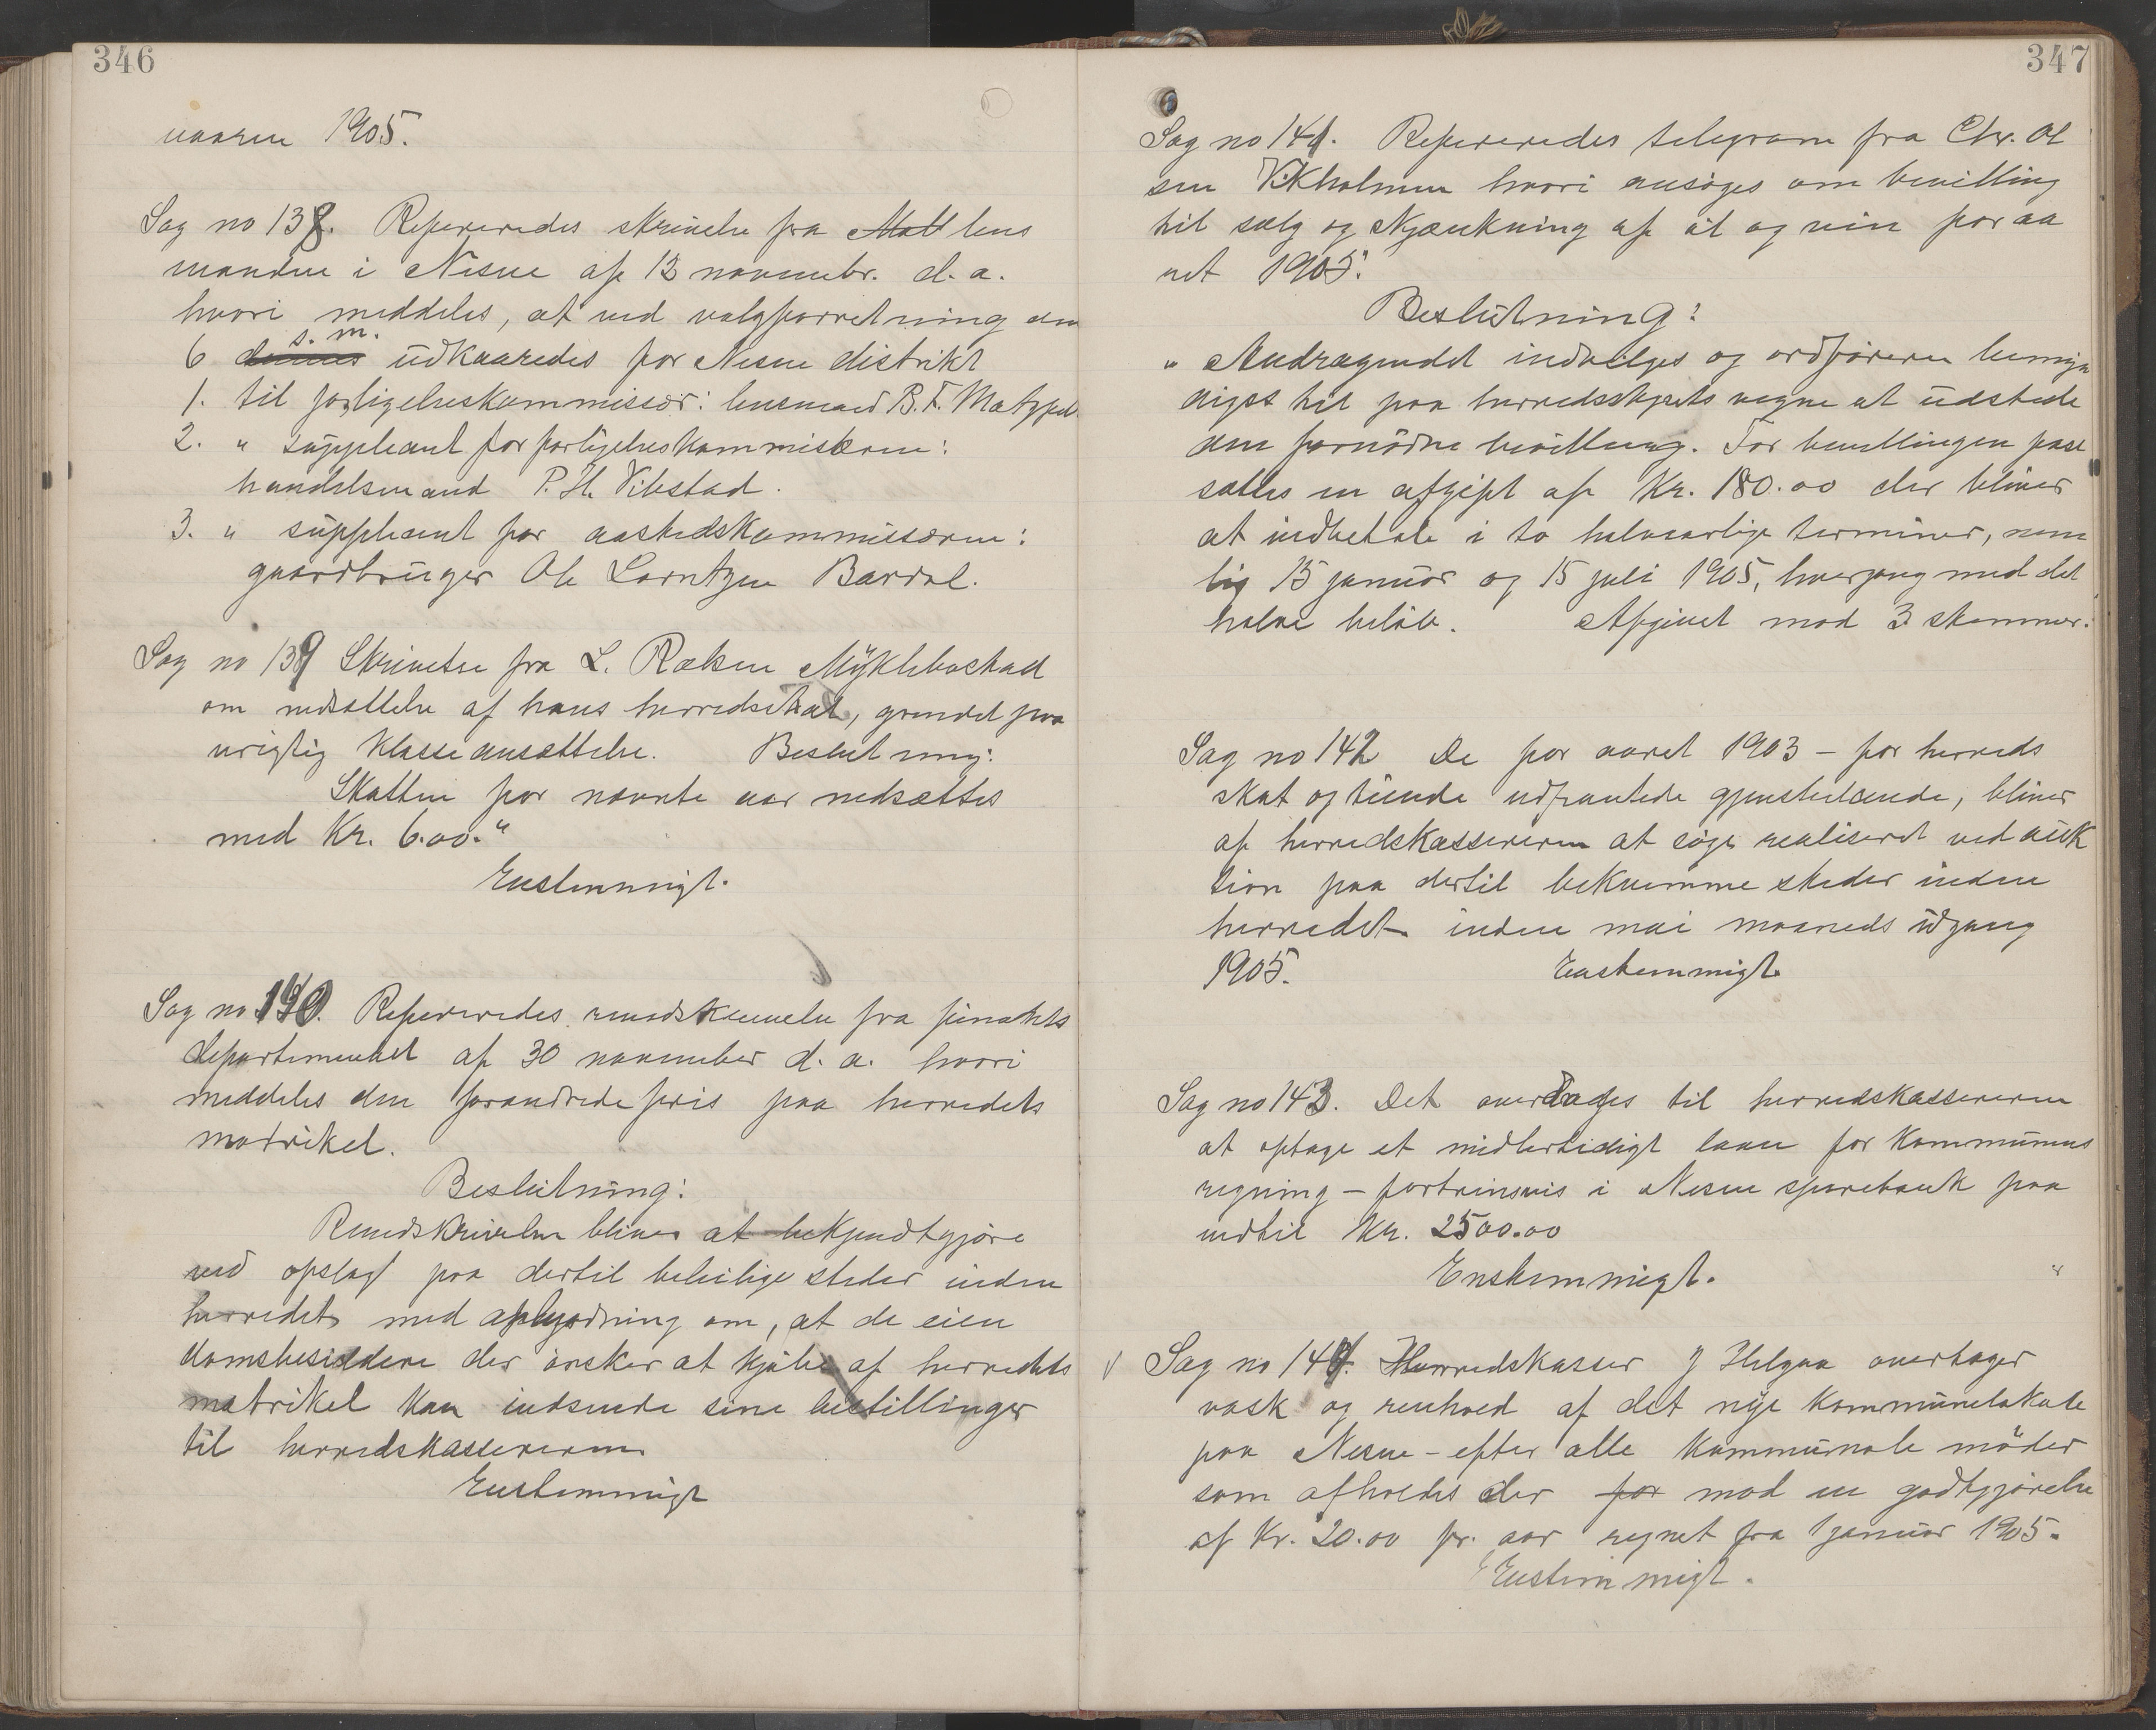 346
vaaren 1905.
Sag no 138. Refereredes skrivelse fra Matt lens
manden i Nesne af 12 novembr. d. a.
hvori meddeles, at ved valgforretning den
s. m.
6 dennes udkaaredes for Nesne distrikt
1. til forligelseskommissær: lensmand B. F.
2. " suppleant for forligelseskommissæren:
handelsmand P. H. Vikstad.
3. " suppleant for aastedskommissæren:
gaardbruger Ole Lorntzen Bardal.
Sag no 139 Skrivelse fra L. Myklebostad
om nedsættelse af hans herredskat, grundet paa
urigtig klasseansættelse. Beslutning:
Skatten for nævnte aar nedsættes
med Kr. 6.00."
Enstemmigt.
Sag no 140. Refereredes rundskrivelse fra finants
departementet af 30 november d. a. hvori
meddeles den forandrede pris paa herredets
matrikel.
Beslutning:
Rundskrivelsen bliver at bekjendtgjøre
ved opslag paa dertil beleilige steder inden
herredet med oplysning om, at de eien
domsbesiddere der ønsker at kjøbe af herredets
matrikel kan indsende sine bestillinger
til herredskassereren
Enstemmigt
347
Sag no 141. Refereredes telegram fra Chr. Ol
sen Vikholmen hvori ansøges om bevilling
til salg og skjænkning af øl og vin for aa
ret 1905.
Beslutning:
" Andragendet indvilges og ordføreren bemyn
diges til paa herredsstyrets vegne at udstede
den fornødne bevilling. For bevillingen fast
sættes en afgift af Kr. 180.00 der bliver
at indbetale i to halvaarlige terminer, nem
lig 15 januar og 15 juli 1905, hvergang med det
halve beløb. Afgivet mod 3 stemmer.
Sag no 142 De for aaret 1903 – for herreds
skat og tiende udpantede gjenstande, bliver
af herredskassereren at søge realiseret ved auk
tion paa dertil bekvemme steder inden
herredet inden mai maaneds udgang
1905. Enstemmigt.
Sag no 143. Det overdrages til herredskassereren
at optage et midlertidigt laan for kommunens
regning – fortrinsvis i Nesne sparebank paa
indtil Kr. 2500.00
Enstemmigt. "
Sag no 144. Herredskasser J Helgaa overtager
vask og renhold af det nye kommunelokale
paa Nesne – efter alle kommunale møder
som afholdes der for mod en godtgjørelse
af Kr. 20.00 pr. aar regnet fra 1 januar 1905.
Enstemmigt.